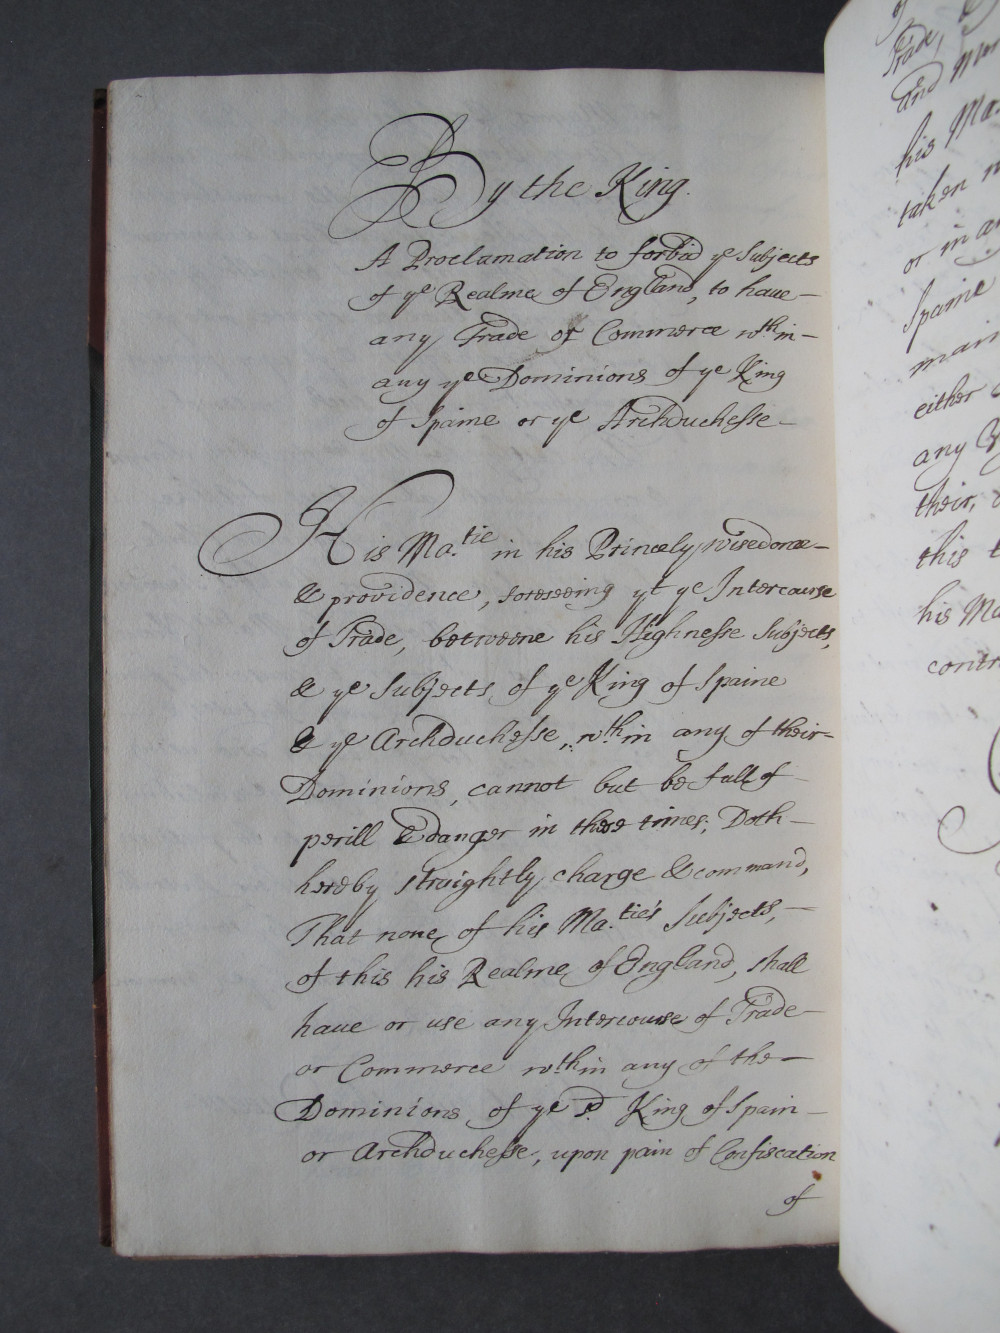 By the King.
A Proclamation to forbid ye Subjects
of ye Realme of England, to haue
any Trade or Commerce wth in
any ye Dominions of ye King
of Spaine or ye Archduchesse
His Ma.tie in his Princely Wisedome
& providence, foreseeing yt ye Intercourse
of Trade, betweene his Highnesse Subjects,
& ye Subjects of ye King of Spaine
& ye Archduchesse, wth in any of their
Dominions, cannot but be full of
perill & danger in these times; Doth
hereby straightly charge & command,
That none of his Ma.ties Subjects,
of this his Realme of England, shall
haue or use any Intercourse of Trade
or Commerce wthin any of the
Dominions of ye sd King of Spain
or Archduchesse, upon pain of Confiscation
of
of
Trade,
and
his Ma.
taken
or in
Spaine
either
any
their,
this
his Ma